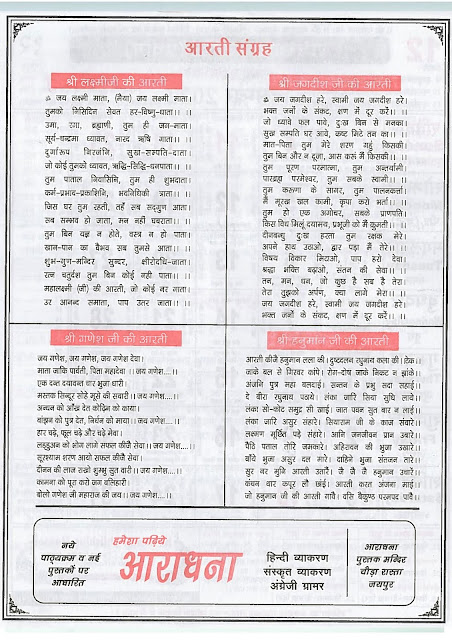 आरती संग्रह
श्री लक्ष्मीजी की आरती
ॐ जय लक्ष्मी माता, (मैया) जय लक्ष्मी माता।
तुमको निसिदिन सेवत हर-विष्णु-धाता।।
उमा, रमा, ब्रह्माणी, तुम ही जग-माता।
सूर्य-चन्द्रमा ध्यावत, नारद ऋषि गाता।।
दुर्गारूप निरंजनि, सुख-सम्पति-दाता।
जो कोई तुमको ध्यावत, ऋद्धि-सिद्धि-धनपाता।।
तुम पाताल निवासिनि, तुम ही शुभदाता।
कर्म-प्रभाव-प्रकाशिनि, भवनिधिकी त्राता।।
जिस घर तुम रहती, तहँ सब सद्गुण आता
सब सम्भव हो जाता, मन नहीं घबराता।।
तुम बिन यज्ञ न होते, वस्त्र न हो पाता
खान-पान का वैभव सब तुमसे आता।।
शुभ-गुण-मन्दिर सुन्दर, क्षीरोदधि-जाता
रत्न चतुर्दश तुम बिन कोई नहीं पाता।।
महालक्ष्मी (जी) की आरती, जो कोई नर गाता
उर आनन्द समाता, पाप उतर जाता।।
श्री जगदीश जी की आरती
ॐ जय जगदीश हरे, स्वामी जय जगदीश हरे।
भक्त जनों के संकट, क्षण में दूर करें।।
जो ध्यावे फल पावे, दुःख विन से मनका।
सुख सम्पति घर आवे, कष्ट मिटे तन का।।
मात-पिता तुम मेरे शरण गहूं किसकी।
तुम बिन और न दूजा, आस करूं मैं किसकी।।
तुम पूरण परमात्मा, तुम अन्तर्यामी।
पारब्रह्म परमेश्वर, तुम सबके स्वामी।।
तुम करुणा के सागर, तुम पालनकर्त्ता।
मैं मूरख खल कामी, कृपा करो भर्ता।।
तुम हो एक अगोचर, सबके प्राणपति।
किस विध मिलूं दयामय, प्रभुजी को मैं कुमती।।
दीनबन्धु दुःख हरता तुम रक्षक मेरे।
अपने हाथ उठाओ, द्वार पड़ा मैं तेरे।।
विषय विकार मिटाओ, पाप हरो देवा।
श्रद्धा भक्ति बढ़ाओ, संतन की सेवा।।
तन, मन, धन, जो कुछ है सब है तेरा।
तेरा तुझको अर्पण, क्या लागे मेरा।।
जय जगदीश हरे, स्वामी जय जगदीश हरे।
भक्त जनों के संकट, क्षण में दूर करें।।
श्री गणेश जी की आरती
जय गणेश, जय गणेश, जय गणेश देवा।
माता जाकि पार्वती, पिता महादेवा।। जय गणेश....।।
एक दन्त दयावन्त चार भुजा धारी।
मस्तक सिन्दूर सोहे मूसे की सवारी।। जय गणेश....।।
अन्धन को आँख देत कोढ़िन को काया।
बांझन को पुत्र देत, निर्धन को माया।। जय गणेश....।।
हार चढ़े, फूल चढ़े और चढ़े मेवा।
लड्डुअन को भोग लागे सफल कीजै सेवा।। जय गणेश....।।
सूरश्याम शरण आयो सफल कीजै सेवा।
दीनन की लाज राखो शुम्भु सुत वारी।। जय गणेश....।।
कामना को पूरा करो जग बलिहारी।
बोलो गणेश जी महाराज की जय।। जय गणेश....।।
श्री हनुमान जी की आरती
आरती कीजै हनुमान लला की। दुष्टदलन रघुनाथ कला की। टेक।
जाके बल से गिरवर कांपे। रोग-दोष जाके निकट न झांके।
अंजनि पुत्र महा बलदाई। सन्तन के प्रभु सदा सहाई
दे बीरा रघुनाथ पठाये। लंका जारि सिया सुधि लाये।
लंका सो-कोट समुद्र सी खाई। जात पवन सुत बार न लाई।
लंका जारि असुर संहारे। सियाराम जी के काज संवारे।
लक्ष्मण मूर्छित पड़े संहारे। आणि जनजीवन प्रान उबारे।
पैठि पाताल तोरि जमकारे। अहिरावन की भुजा उखारे।
बाँये भुजा असुर दल मारे। दाहिने भुजा संतजन तारे।
सुर नर मुनि आरती उतारें। जै जै जै हनुमान उचारे
कंचन थार कपूर लौ छाई। आरती करत अंजना माई
जो हनुमान जी की आरती गावै। वसि बैकुण्ठ परमपद पावै।।
नये
पाठ्यक्रम व नई
पुस्तकों पर
आधारित
हमेशा पढ़िये
आराधना
हिन्दी व्याकरण
संस्कृत व्याकरण
अंग्रेजी ग्रामर
आराधना
पुस्तक मन्दिर
चौड़ा रास्ता
जयपुर